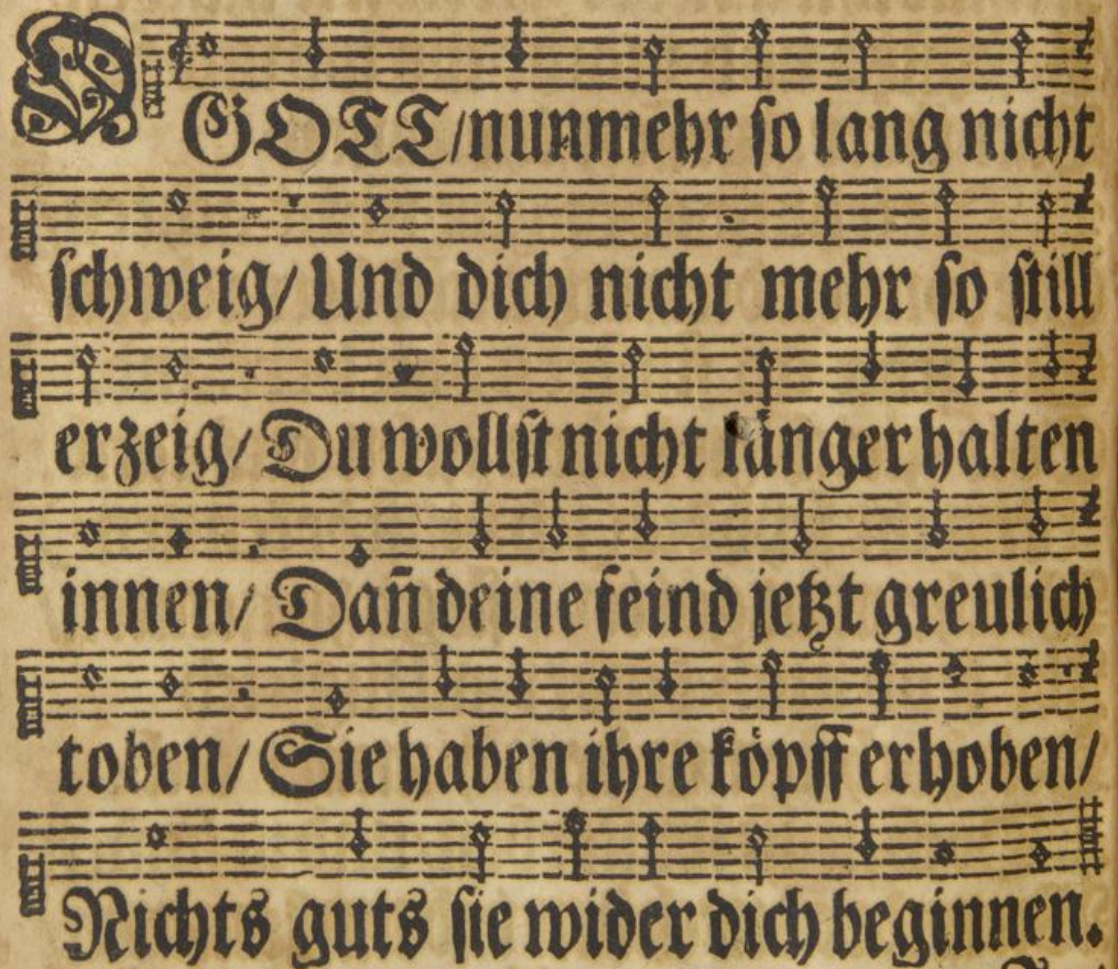 O GOTT/nunmehr ſo lang nicht
ſchweig/ Und dich nicht mehr ſo ſtill
erzeig/ Du wollſt nicht länger halten
innen/ Dañ deine feind jetzt greulich
toben/ Sie haben ihre köpff erhoben/
Nichts guts ſie wider dich beginnen.